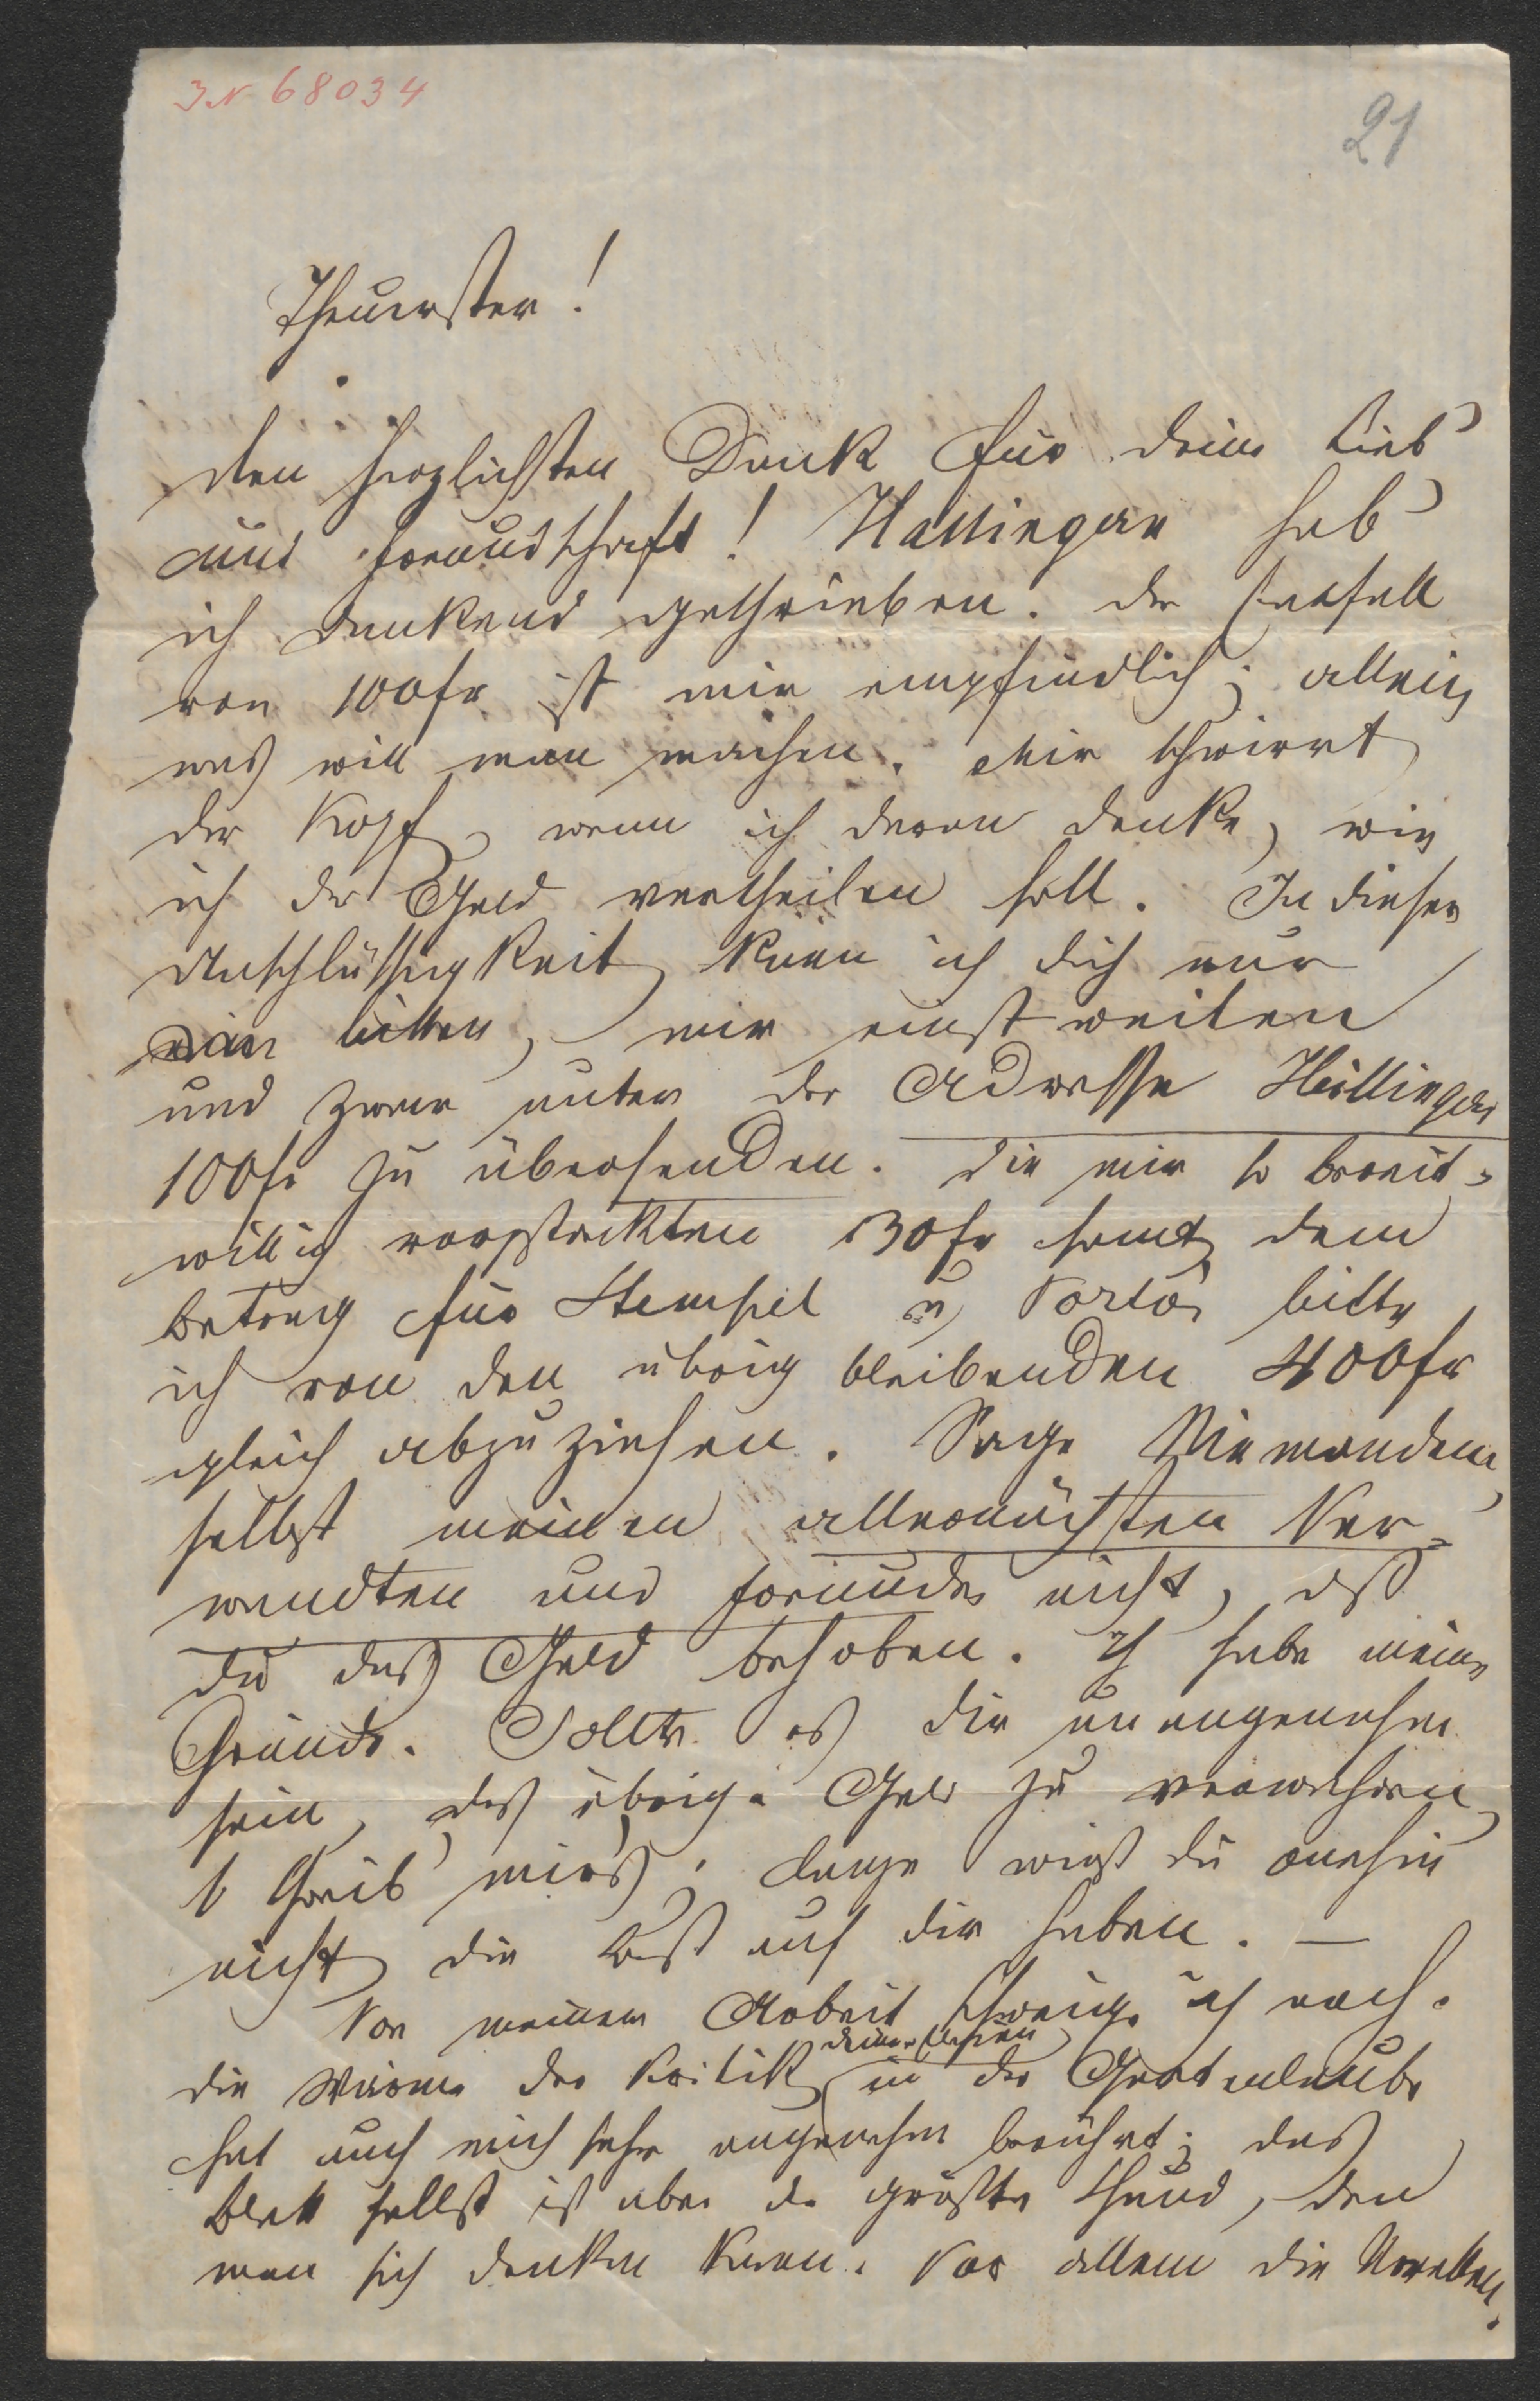 IN 68034
21
Theuerster!
Den herzlichsten Dank für deine Lieb'
und Freundschaft! Hallinger hab'
ich dankend geschrieben. Der
von 100 fr ist mir empfindlich; allein
was will man machen. Mir schwirrt
der Kopf, wenn ich daran denke, wie
ich das Geld vertheilen soll. In dieser
Unschlüssigkeit kann ich dich nur
bitten, mir einstweilen
und zwar unter der Adresse Hallinger
100 fr zu übersenden. Die mir so bereit-
willig vorgestreckten 30 fr sammt dem
Betrag für Stempel u Porto bitte
ich von den übrig bleibenden 400 fr
gleich abzuziehen. Sage Niemandem,
selbst meinen allernächsten Ver-
wandten und Freunden nicht, daß
du das Geld behoben. Ich habe meine
Gründe. Sollte es dir unangenehm
sein, das übrige Geld zu verwahren,
so schreib' mir's; lange wirst du ohnehin
nicht die Last auf dir haben. —
Von meiner Arbeit schweige ich noch.
Die Wärme der Kritik deiner in der Gartenlaube
hat auch mich sehr angenehm berührt; das
Blatt selbst ist aber der größte Schund, den
man sich denken kann. Vor allem die Novellen.